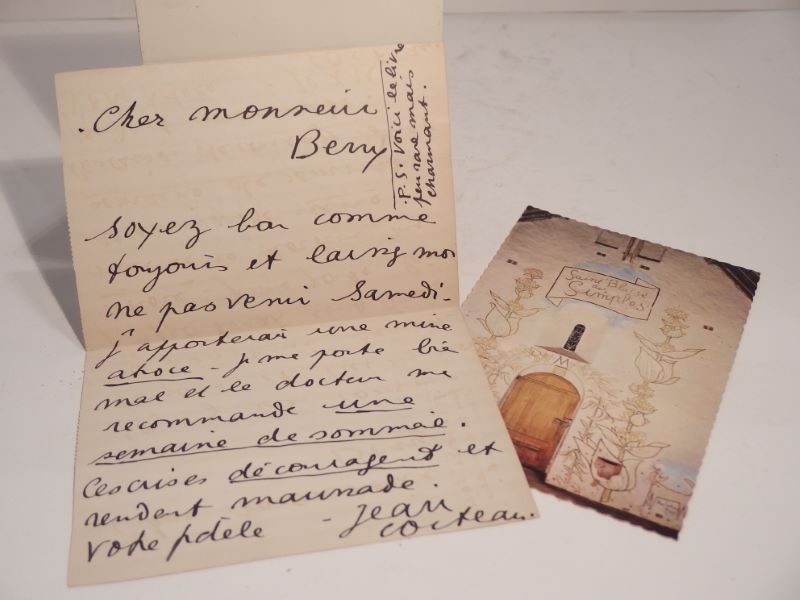 . Cher monsieur
Berry
soyez bon comme
toujours et laissez moi
ne pas venir samedi -
j'apporterais une mine
atroce - je me porte bie
mal et le docteur me
recommande une
semaine de sommeil.
Ces crises découragent et
rendent maussade.
Votre fidèle - Jean
Cocteau.
. P.S. Voici le livre
peu rare mais
charmant.
Saint Blaise
des
Simples
M